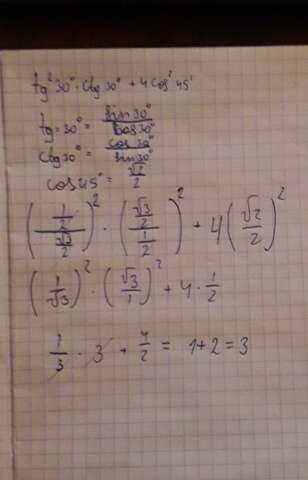 tg²30° · ctg 30° + 4cos²45°
tg = 30° = sin30° / cos30°
ctg30° = cos30° / sin30°
cos45° = √2 / 2
((1/2) / (√3/2))² · ((√3/2) / (1/2))² + 4(√2/2)²
(1/√3)² · (√3/1)² + 4 · 1/2
1/3 · 3 + 4/2 = 1+2 = 3